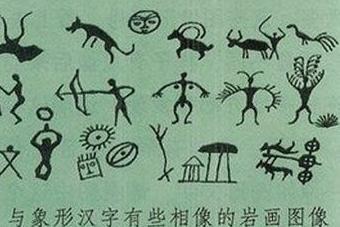 与象形汉字有些相像的岩画图像